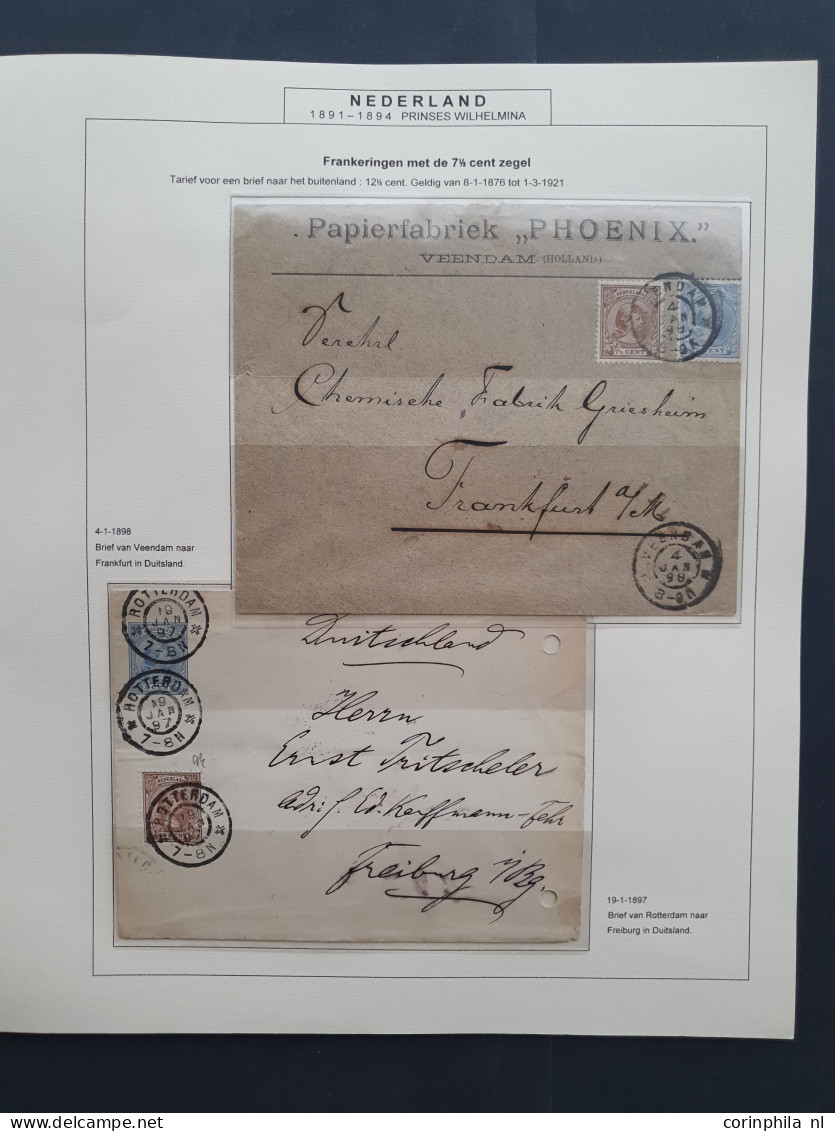 NEDERLAND
1891–1894 PRINSES WILHELMINA
Frankeringen met de 7½ cent zegel
Tarief voor een brief naar het buitenland : 12½ cent. Geldig van 8-1-1876 tot 1-3-1921
. Papierfabriek „PHOENIX."
VEENDAM (HOLLAND.)
NEDERLAND
7½ CENT
CENT
4
JAN
98
Verehrl
Chemische Fabrik Griesheim
Frankfurt a/M
VEENDAM
4
JAN
98
8-9N
4-1-1898
Brief van Veendam naar
Frankfurt in Duitsland.
ROTTERDAM
19
JAN
97
7-8N
ROTTERDAM
19
JAN
97
7-8N
NEDERLAND
ROTTERDAM
7-8N
Duitschland
Herrn
Ernst Tritscheler
adr. f. Ed. Kauffmann-Fehr
Freiburg i/Bg.
19-1-1897
Brief van Rotterdam naar
Freiburg in Duitsland.
www.delcampe.net
corinphila nl